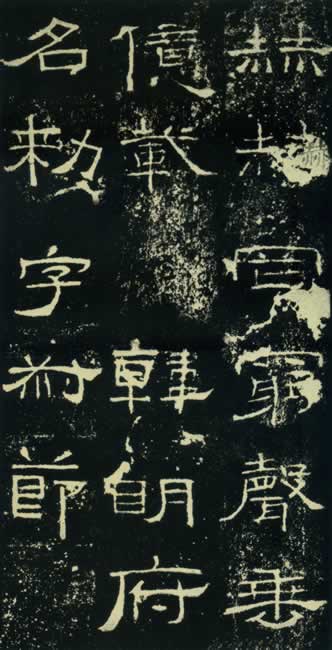 赫赫罔窮聲垂
億載　韓明府
名勑字叔節